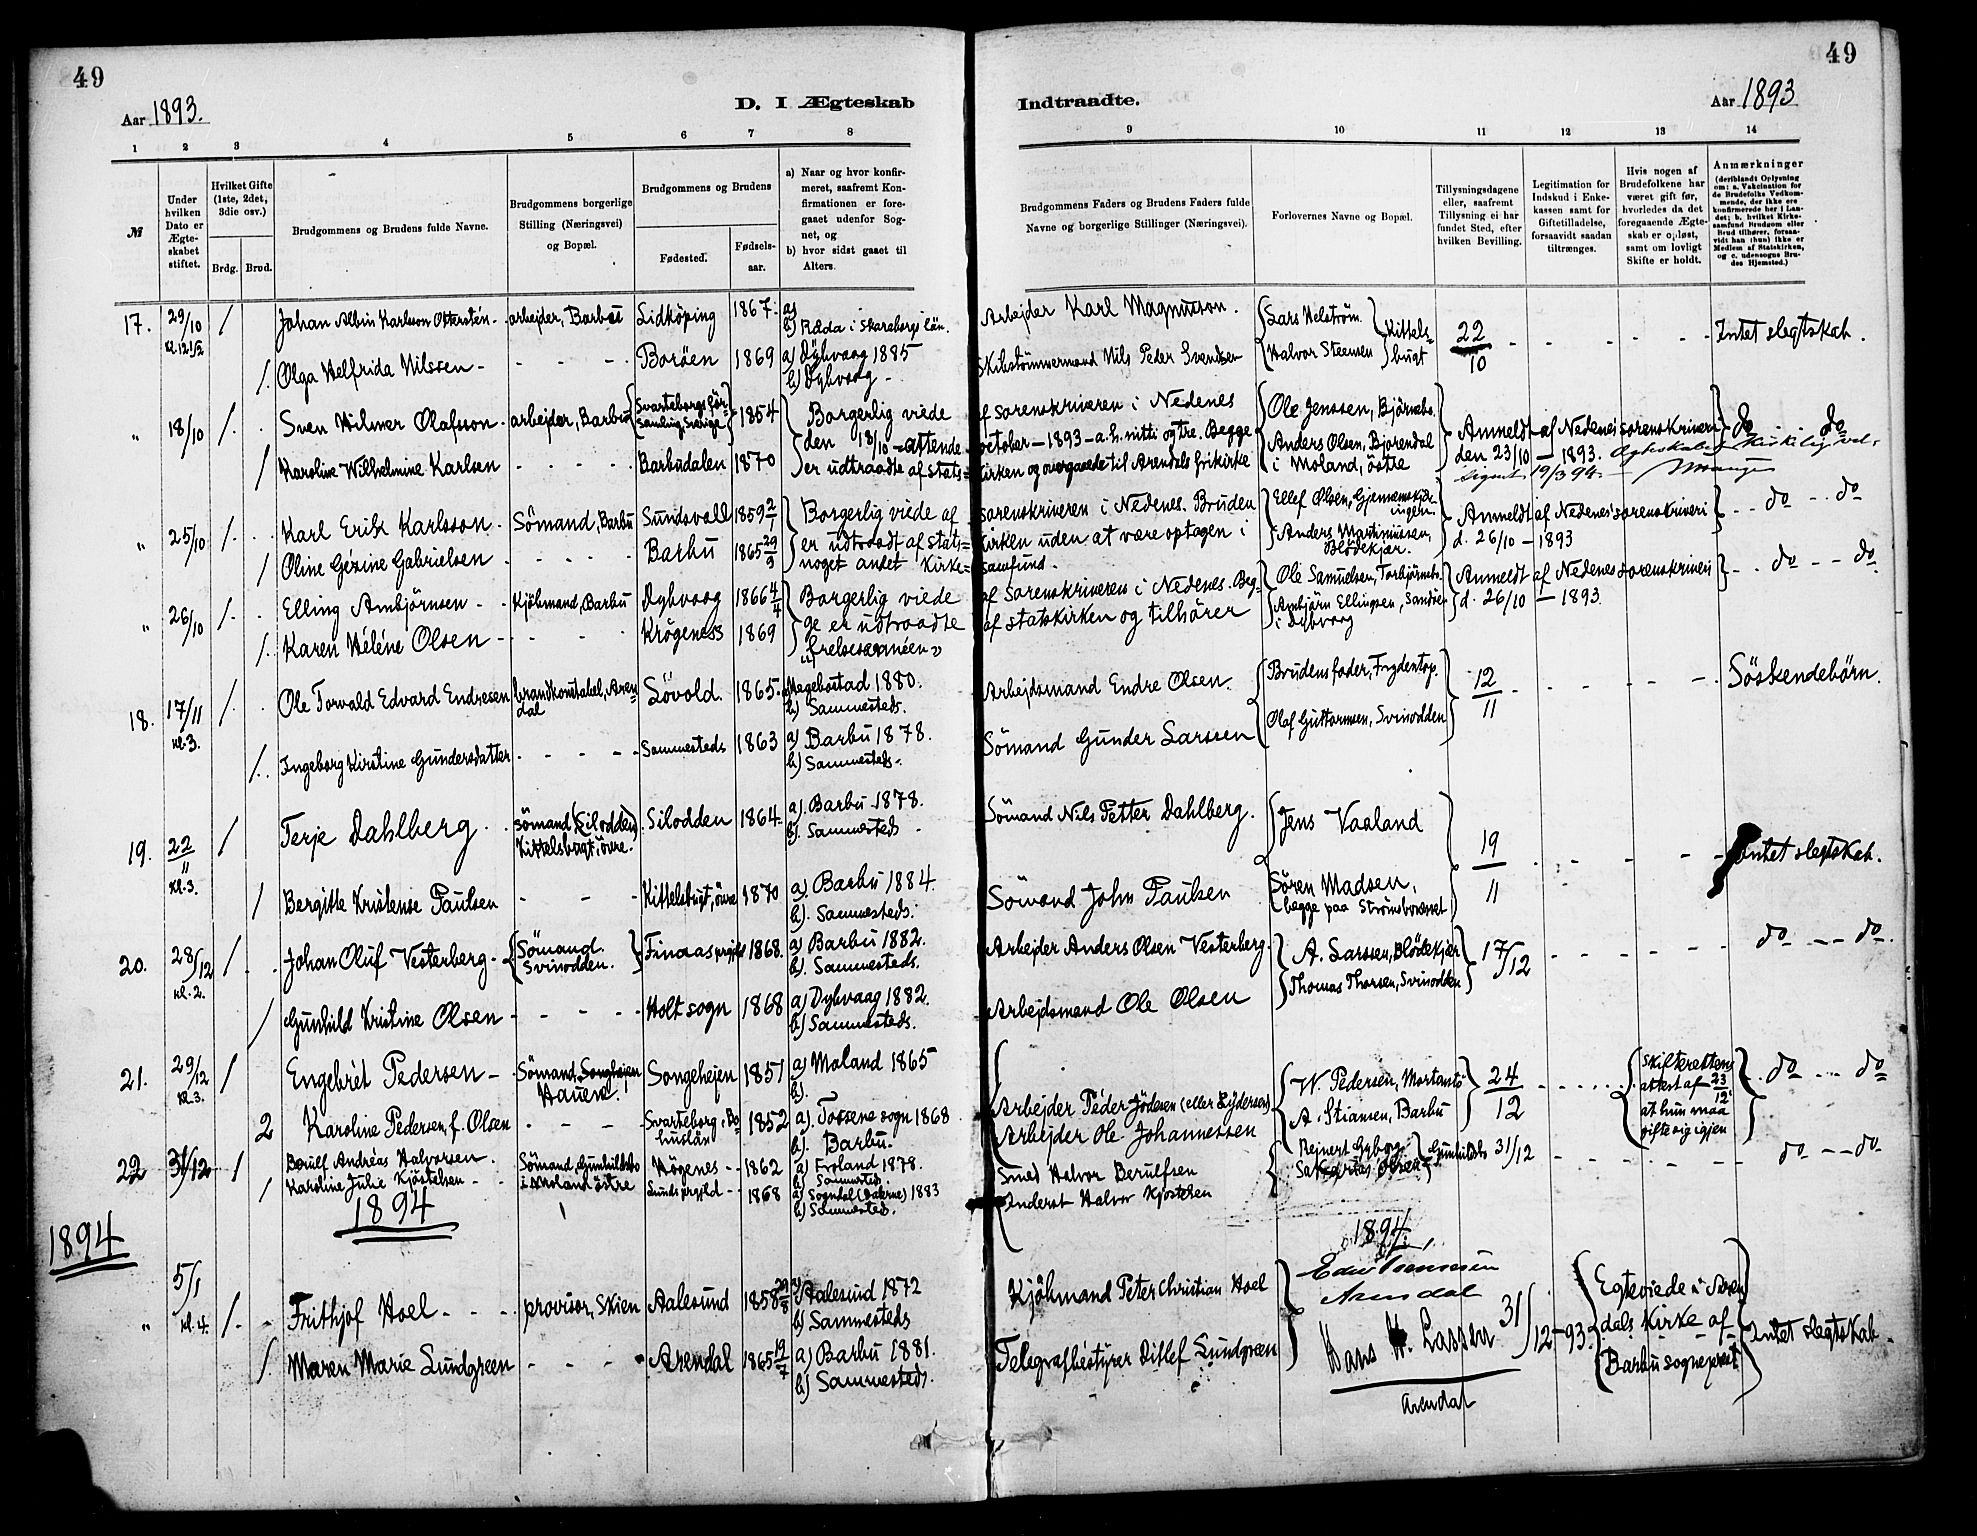 49
49
Aar 1893.
D. I Ægteskab
Indtraadte.
Aar 1893
1 2 3 4 5 6 7 8 9 10 11 12 13 14
№
Under hvilken Dato er Ægteskabet stiftet.
Hvilket Gifte (1ste, 2det, 3die osv.)
Brdg. Brud.
Brudgommens og Brudens fulde Navne.
Brudgommens borgerlige Stilling (Næringsvei) og Bopæl.
Brudgommens og Brudens
Fødested.
Fødselsaar.
a) Naar og hvor konfirmeret, saafremt Konfirmationen er foregaaet udenfor Sognet, og
b) hvor sidst gaaet til Alters.
Brudgommens Faders og Brudens Faders fulde Navne og borgerlige Stillinger (Næringsvei).
Forlovernes Navne og Bopæl.
Tillysningsdagene eller, saafremt Tillysning ei har fundet Sted, efter hvilken Bevilling.
Legitimation for Indskud i Enkekassen samt for Giftetilladelse, forsaavidt saadan tiltrænges.
Hvis nogen af Brudefolkene har været gift før, hvorledes da det foregaaende Ægteskab er opløst, samt om lovligt Skifte er holdt.
Anmærkninger (deriblandt Oplysning om: a. Vakcination for de Brudefolks Vedkommende, der ikke ere konfirmerede her i Landet; b. hvilket Kirkesamfund Brudgom eller Brud tilhører, forsaavidt han (hun) ikke er Medlem af Statskirken, og c. udensogns Brudes Hjemsted.)
17. 29/10 kl. 12 1/2 / Johan Albin Karlsson Ottersten - arbejder, Barbu Lidköping 1867 a) b) Råda i Skaraborgs län. Arbejder Karl Magnusson. Lars Helström Halvor Steensen Kittelsbugt 22/10 - - - Intet slegtskab.
/ Olga Helfrida Nilssen - - - - Borøen 1869 a) Dybvaag 1885 b) Dybvaag - Skibstömmermand Nils Peder Svendsen
" 18/10 / Sven Hilmer Olafsson arbejder, Barbu Svarteborgs församling, Sverige 1854 Borgerlig viede af sorenskriveren i Nedenes Ole Jenssen, Björnebo. Anmeldt af Nedenes sorenskriveri do do
/ Karoline Wilhelmine Karlsen - - - - Barbudalen 1870 den 18/10 - attende october - 1893 - a.h. nitti og tre. Begge er udtraadte af statskirken og overgaaede til Arendals frikirke Anders Olsen, Bjorendal i Moland, östre den 23/10 - 1893. Egteskabet kirkelig velsignet 19/3 94
" 25/10 / Karl Erik Karlsson. Sömand, Barbu Sundsvall 1859 2/1 Borgerlig viede af sorenskriveren i Nedenes. Bruden Ellef Olsen, Anmeldt af Nedenes sorenskriveri - - do - - do
/ Oline Gézine Gabrielsen - - - - Barbu 1865 29/9 er udtraadt af statskirken uden at være optagen i noget andet kirkesamfund. Anders Martinussen, Blödekjær. d. 26/10 - 1893
" 26/10 / Elling Ambjörnsen - - Kjöbmand, Barbu Dybvaag 1866 4/4 Borgerlig viede af sorenskriveren i Nedenes. Begge er udtraadte af statskirken og tilhører "frelsesarméen" Ole Samuelsen, Torbjörnsbo Anmeldt af Nedenes sorenskriveri - - do - - do
/ Karen Héléne Olsen - - - - Krögeness 1869 Ambjörn Ellingsen, i Dybvaag d. 26/10 - 1893.
18. 17/11 kl. 3. / Ole Torvald Edvard Endresen brandkonstabel, Arendal Lövold 1865 a) Hægebostad 1880. b) Sammesteds. Arbejdsmand Endre Olsen. Brudens fader, Frydentop. Olaf Guttormsen, Svinodden 12/11 - - - - Söskendebörn.
/ Ingeborg Kirstine Gundersdatter - - - - Sammesteds 1863 a) Barbu 1878. b) Sammesteds. Sömand Gunder Larssen
19. 22/11 kl. 3. / Terje Dahlberg. Sömand (Silodden) Kittelsbugt, övre. Silodden 1864 a. Barbu 1878. b). Sammesteds - Sömand Nils Petter Dahlberg. Jens Vaaland 19/11 - - - - Intet slegtskab.
/ Bergitte Kristense Paulsen - - - Kittelsbugt, övre 1870 a). Barbu 1884. b). Sammesteds. Sömand John Paulsen Sören Madsen, begge paa Strömsbuneset
20. 28/12 kl. 2. / Johan Oluf Vesterberg - Sömand. Svinodden. Finaas prgjld 1868. a) Barbu 1882. b). Sammesteds. Arbejder Anders Olsen Vesterberg. A. Larssen, Blödekjær Thomas Thorsen, Svinodden 17/12 - - - - do - - do.
/ Gunhild Kristine Olsen - - - - Holt sogn 1868 a) Dybvaag 1882. b) Sammesteds. Arbejdsmand Ole Olsen
21. 29/12 kl. 3. / Engebrét Pedersen - Sömand, Songhejen Hauene. Songehejen 1851 a) Moland 1865 b). Arbejder Péder Jödesen (eller Lydersen) W. Pedersen, A. Stiansen, Barbu 24/12 - - - - Skifterettens attest af 23/12 at hun maa gifte sig igjen - do - - do
2 Karoline Pedersen, f. Olsen - - - - Svarteborg, Bohuslän 1852 a). Tossene sogn 1868 b). Barbu. Arbejder Ole Johannessen
22 31/12 / Berulf Andréas Halvorsen. Sömand, Gunhildsbo i Moland östre Högenes - - 1862 a) Froland 1878. b) Sammesteds Smed Halvor Berulfsen Rejnert Gyborg Sakarias Olsen Gunhildsbo 31/12 - - - - - do - - do
/ Karoline Julie Kjöstelsen - - Lunds prgjld - - 1868 a) Sogndal (Dalerne) 1883 b) Sammesteds. Inderst Halvor Kjöstelsen
1894
1894
1894.
" 5/1 kl. 4. / - Frithjof Hoel - - - provisor, Skien Aalesund 1858 29/8 a) Aalesund 1872 b) Sammesteds Kjöbmand Peter Christian Hoel Arendal 31/12 - 93. Egteviede i Arendals kirke af Barbu sogneprest Intet slegtskab -
/ Maren Marie Lundgreen - - - Arendal 1865 19/7 a) Barbu 1881. b) Sammesteds. Telegrafbestyrer Ditlef Lundgreen Hans H. Lassen Arendal